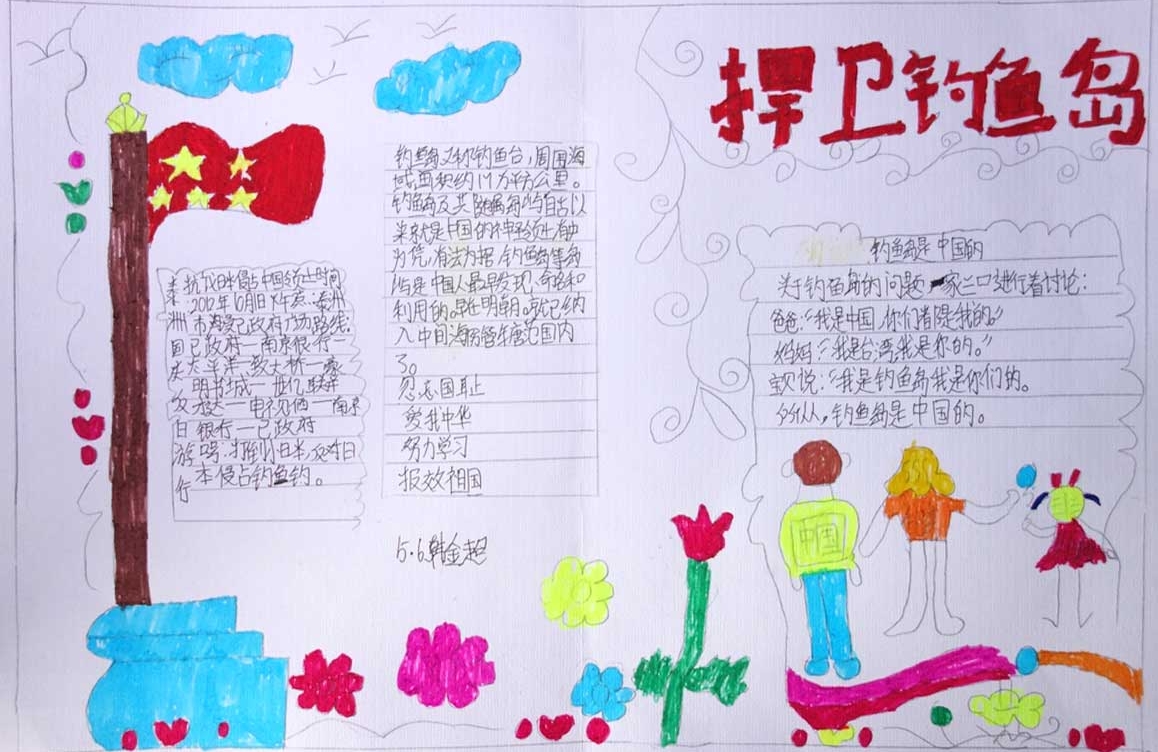 捍卫钓鱼岛
抗议日本侵占中国领土时间
2012年10月1日
市海安已政府广场路线:
已政府一南京银行一
太平洋一教大桥一
明书城一世纪联华
一电视
银行一已政府
打倒小日本,反对日
本侵占钓鱼钓。
钓鱼岛又称钓鱼台,周围海
域面积约17万平方公里。
钓鱼岛及其附属岛屿自古以
来就是中国的神圣领土有史
为凭,有法为据,钓鱼岛等岛
屿是中国人最早发现、命名和
利用的。早在明朝。就已纳
入中国海防管辖范围内
了。
勿忘国耻
爱我中华
努力学习
报效祖国
5.6韩金超
钓鱼岛是中国的
关于钓鱼岛的问题一家三口进行着讨论:
爸爸:“我是中国,你们都是我的。”
妈妈:“我是台湾,我是你的。”
宝贝说:“我是钓鱼岛我是你们的。
所以,钓鱼岛是中国的。
中国